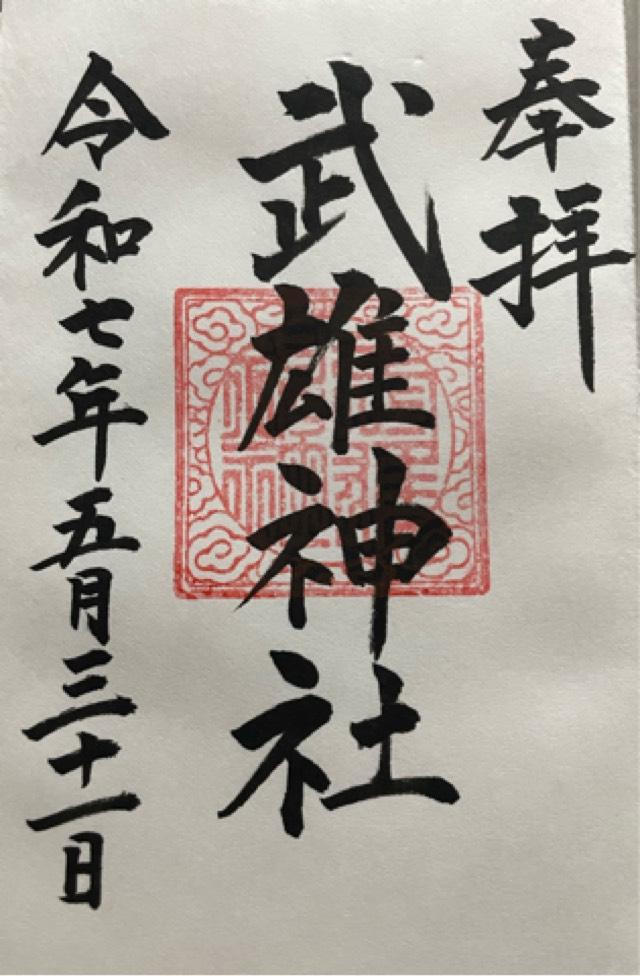 奉拝
武雄神社
令和七年五月三十一日